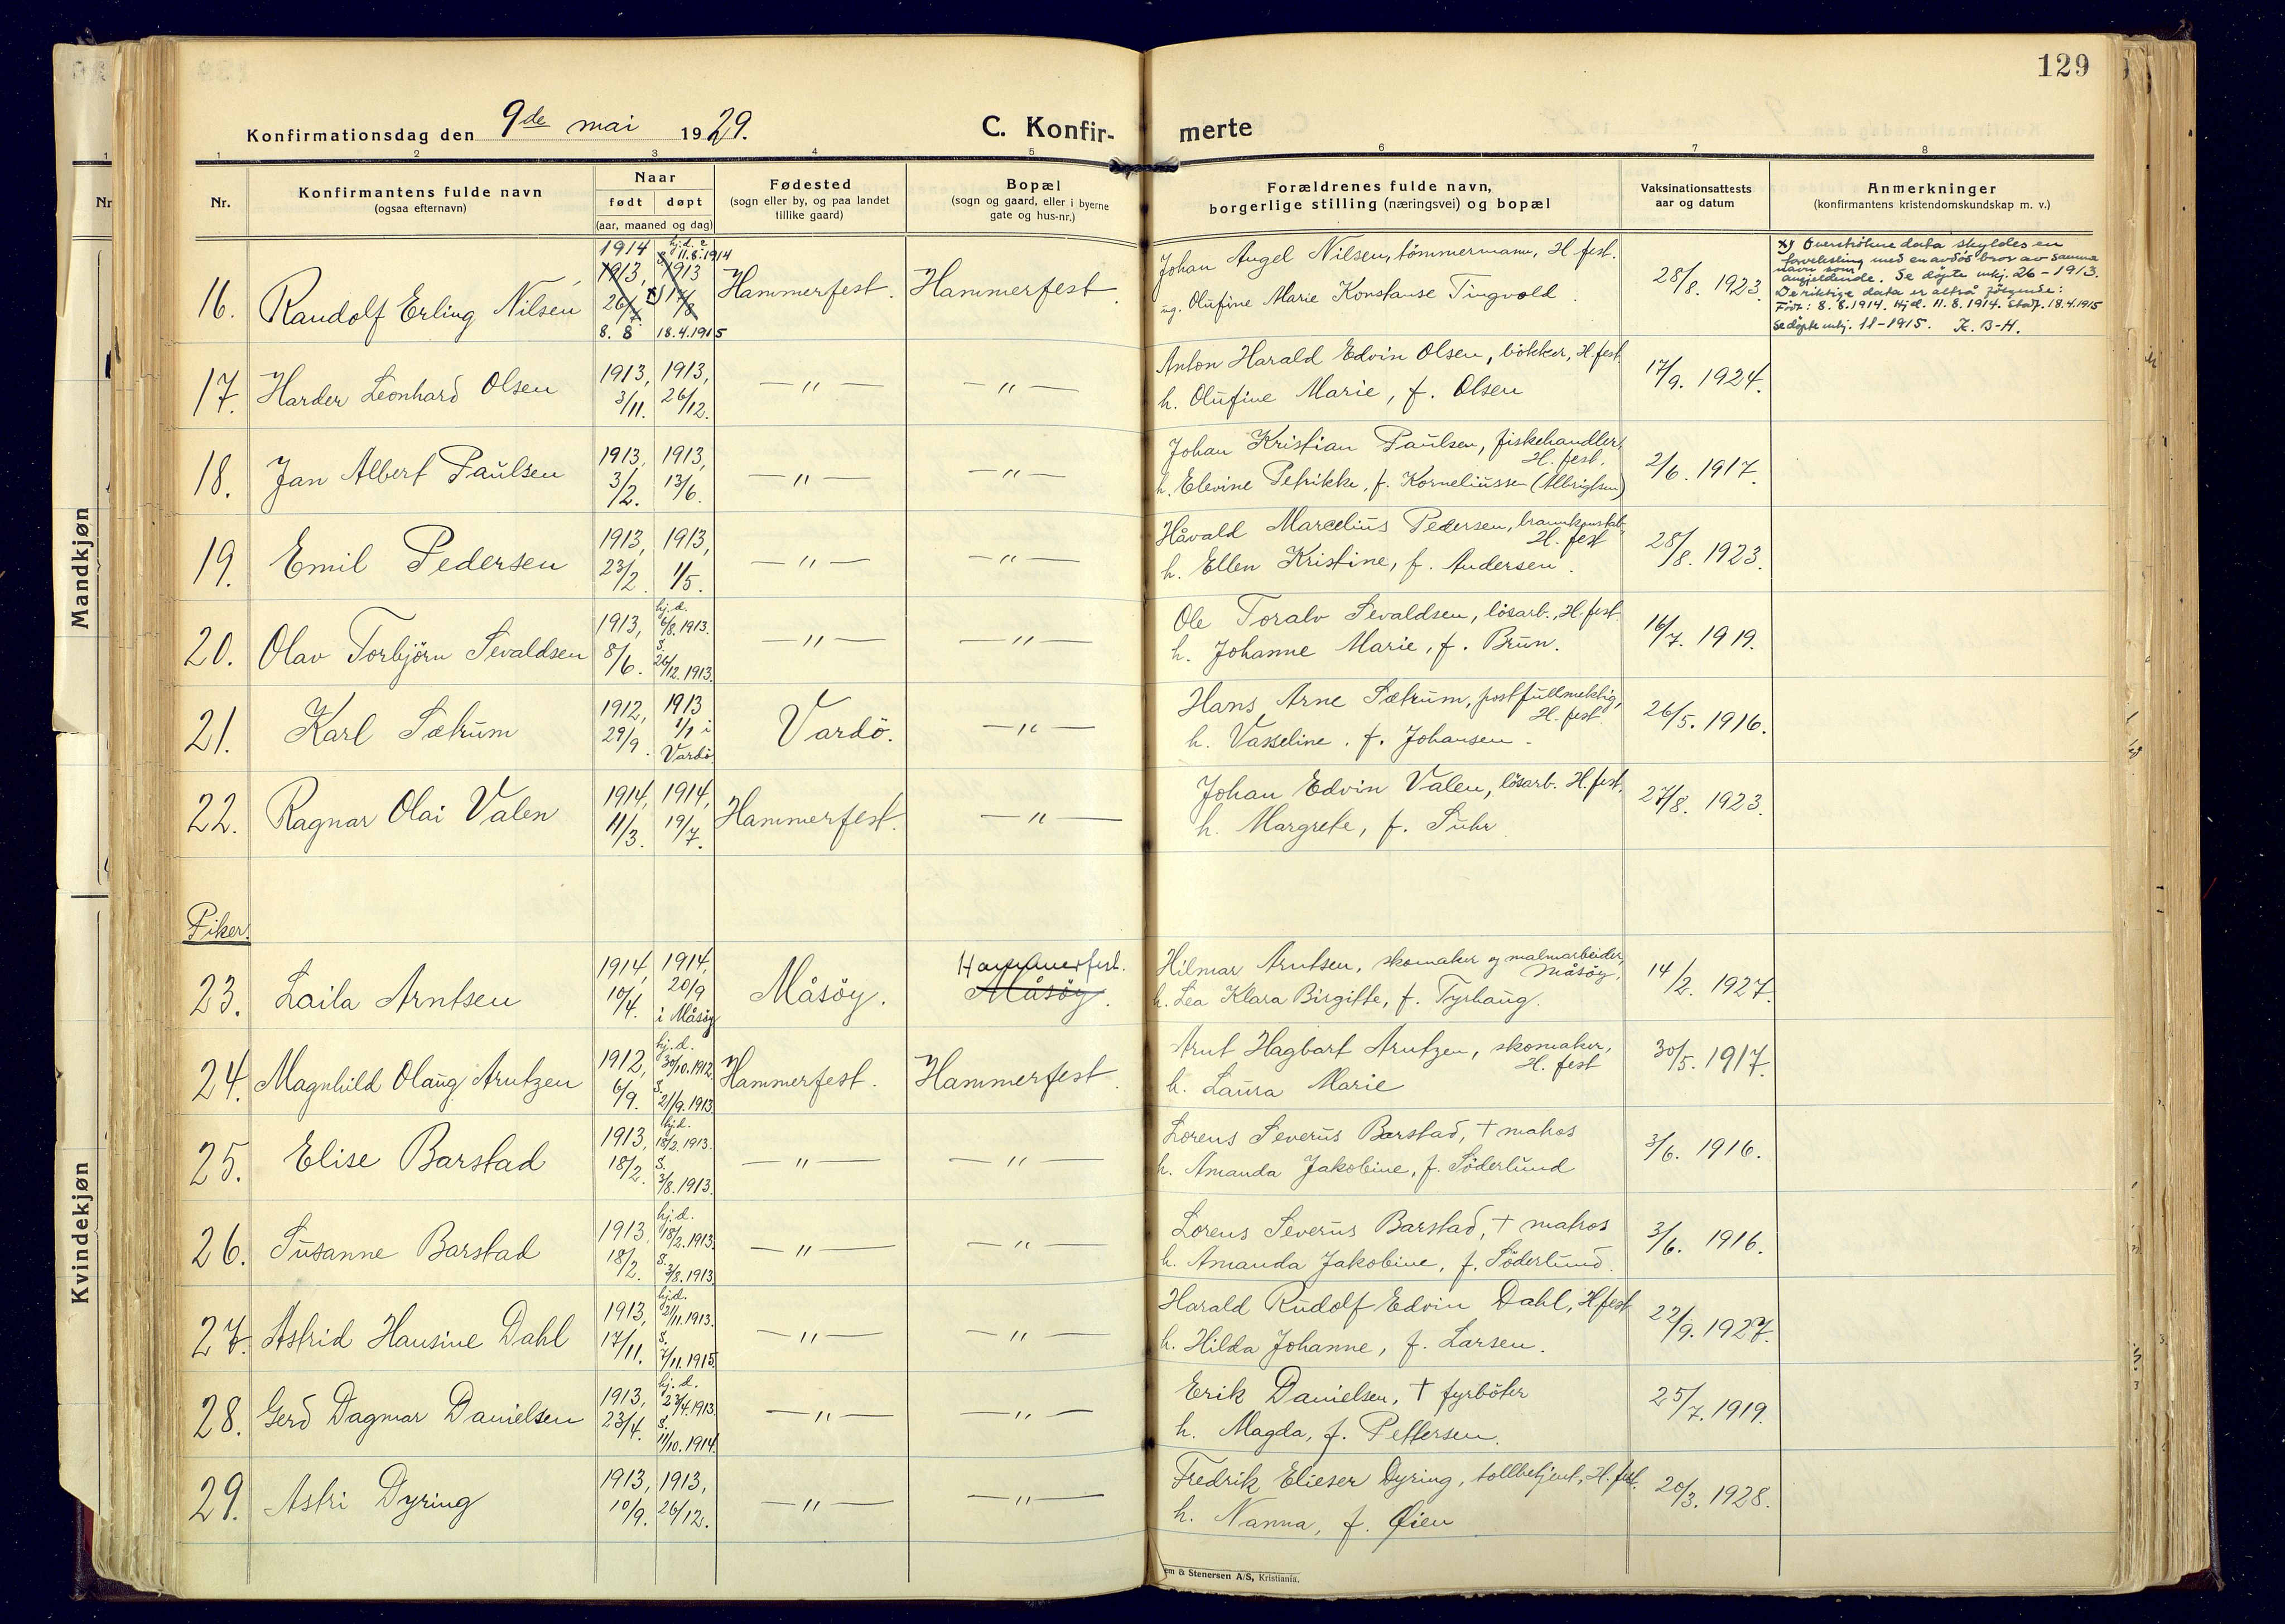 129
Konfirmationsdag den 9de mai 1929.
C. Konfirmerte
1 2 3 4 5 6 7 8
Nr.
Konfirmantens fulde navn
(ogsaa efternavn)
Naar
født døpt
(aar, maaned og dag)
Fødested
(sogn eller by, og paa landet
tillike gaard)
Bopæl
(sogn og gaard, eller i byerne
gate og hus-nr.)
Forældrenes fulde navn,
borgerlige stilling (næringsvei) og bopæl
Vaksinationsattests
aar og datum
Anmerkninger
(konfirmantens kristendomskundskap m. v.)
Mandkjøn
16. Randolf Erling Nilsen 1914 1913, 26/7 8. 8 hj.d. 11.8.1914 1913 x) 17/8 18.4.1915 Hammerfest. Hammerfest.
Johan Angel Nilsen, tömmermann, H.fest.
ug. Olufine Marie Konstanse Tingvold.
28/8. 1923.
x) Overströkne data skyldes en
forveksling med en avdöd bror av samme
navn som
angjeldende. Se döpte mkj. 26-1913.
De riktige data er altså fölgende:
Född: 8.8.1914. Hjd. 11.8.1914. Stadf. 18.4.1915
Se döpte mkj. 11-1915. K. B-H.
17. Harder Leonhard Olsen 1913, 3/11. 1913, 26/12. — " — — " —
Anton Harald Edvin Olsen, bökker, H.fest
h. Olufine Marie, f. Olsen
17/9. 1924.
18. Jan Albert Paulsen 1913, 3/2. 1913, 13/6. — " — — " —
Johan Kristian Paulsen, fiskehandler,
H. fest.
h. Elevine Petrikke, f. Korneliussen (Albrigtsen)
2/6. 1917.
19. Emil Pedersen 1913, 23/2. 1913, 1/5. — " — — " —
Håvald Marcelius Pedersen, brannkonstab.,
H. fest
h. Ellen Kristine, f. Andersen.
28/8. 1923.
20. Olav Torbjörn Sevaldsen 1913, 8/6. hj.d. 6/8.1913. S. 26/12.1913. — " — — " —
Ole Toralv Sevaldsen, lösarb., H.fest.
h. Johanne Marie, f. Brun.
16/7. 1919.
21. Karl Sætrum 1912, 29/9. 1913 1/1 i Vardö. Vardö. — " —
Hans Arne Sætrum, postfullmektig,
H. fest.
h. Vasseline, f. Johansen.
26/5. 1916.
22. Ragnar Olai Valen 1914, 11/3. 1914, 19/7. Hammerfest. — " —
Johan Edvin Valen, lösarb. H.fest,
h. Margrete, f. Suhr
27/8. 1923.
Piker.
Kvindekjøn
23. Laila Arntsen 1914, 10/4. 1914, 20/9 i Måsöy Måsöy. Hammerfest. Måsöy.
Hilmar Arntsen, skomaker og malmarbeider,
Måsöy,
h. Lea Klara Birgitte, f. Tyrhaug.
14/2. 1927.
24. Magnhild Olaug Arntzen 1912, 6/9. hj.d. 30/10.1912. S. 21/9.1913. Hammerfest. Hammerfest.
Arnt Hagbart Arntzen, skomaker,
H. fest
h. Laura Marie
30/5. 1917.
25. Elise Barstad 1913, 18/2. hj.d. 18/2.1913. S. 3/8.1913. — " — — " —
Lorens Severus Barstad, † matros
h. Amanda Jakobine, f. Söderlund
3/6. 1916.
26. Susanne Barstad 1913 18/2. hj.d. 18/2.1913. S. 3/8.1913 — " — — " —
Lorens Severus Barstad, † matros
h. Amanda Jakobine, f. Söderlund.
3/6. 1916.
27. Astrid Hansine Dahl 1913, 17/11. hj.d. 21/11.1913. S. 7/11.1915. — " — — " —
Harald Rudolf Edvin Dahl, H.fest
h. Hilda Johanne, f. Larsen.
22/9. 1927.
28. Gerd Dagmar Danielsen 1913, 23/4. hj.d. 23/4.1913. S. 11/10.1914. — " — — " —
Erik Danielsen, † fyrböter
h. Magda, f. Pettersen.
25/7. 1919.
29. Astri Dyring 1913, 10/9. 1913, 26/12. — " — — " —
Fredrik Elieser Dyring, tollbetjent, H.fest.
h. Nanna, f. Øien
20/3. 1928.
em & Stenersen A/S, Kristiania.